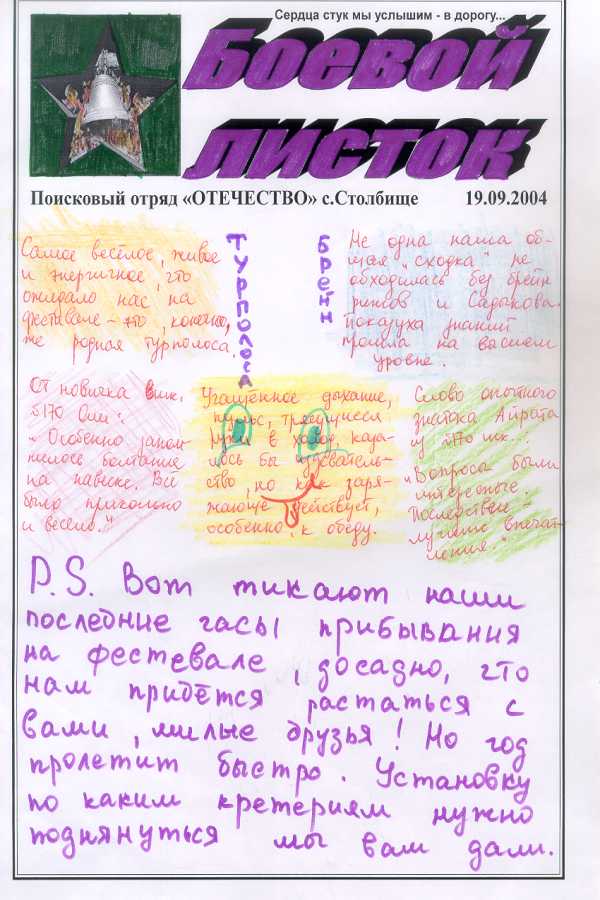 Сердца стук мы услышим - в дорогу...
Боевой
листок
Поисковый отряд «ОТЕЧЕСТВО» с.Столбище 19.09.2004
Самое весёлое, живое
и энергичное, что
ожидало нас на
фестевале – это, конечно,
же родная турполоса.
ТУРПОЛОСА
БРЕЙН
Не одна наша об-
щая "сходка" не
обходилась без брейн
рингов и Садыкова
показуха знаний
прошла на высшем
уровне.
От новичка вшк.
№170 Оли:
"Особенно запом-
нилось болтание
на навеске. Всё
было прикольно
и весело."
Учащённое дыхание,
пульс, трясущиеся
руки в холод, каза-
лось бы издеватель-
ство, но как заря-
жающе действует,
особенно к обеду.
Слово опытного
знатока Айрата
из №170 шк.:
"Вопросы были
интересные.
Последствен –
лучшие впечат-
ления."
P.S. Вот тикают наши
последние часы прибывания
на фестевале, досадно, что
нам придётся растаться с
вами, милые друзья! Но год
пролетит быстро. Установку
по каким кретериям нужно
поднянуться мы вам дали.